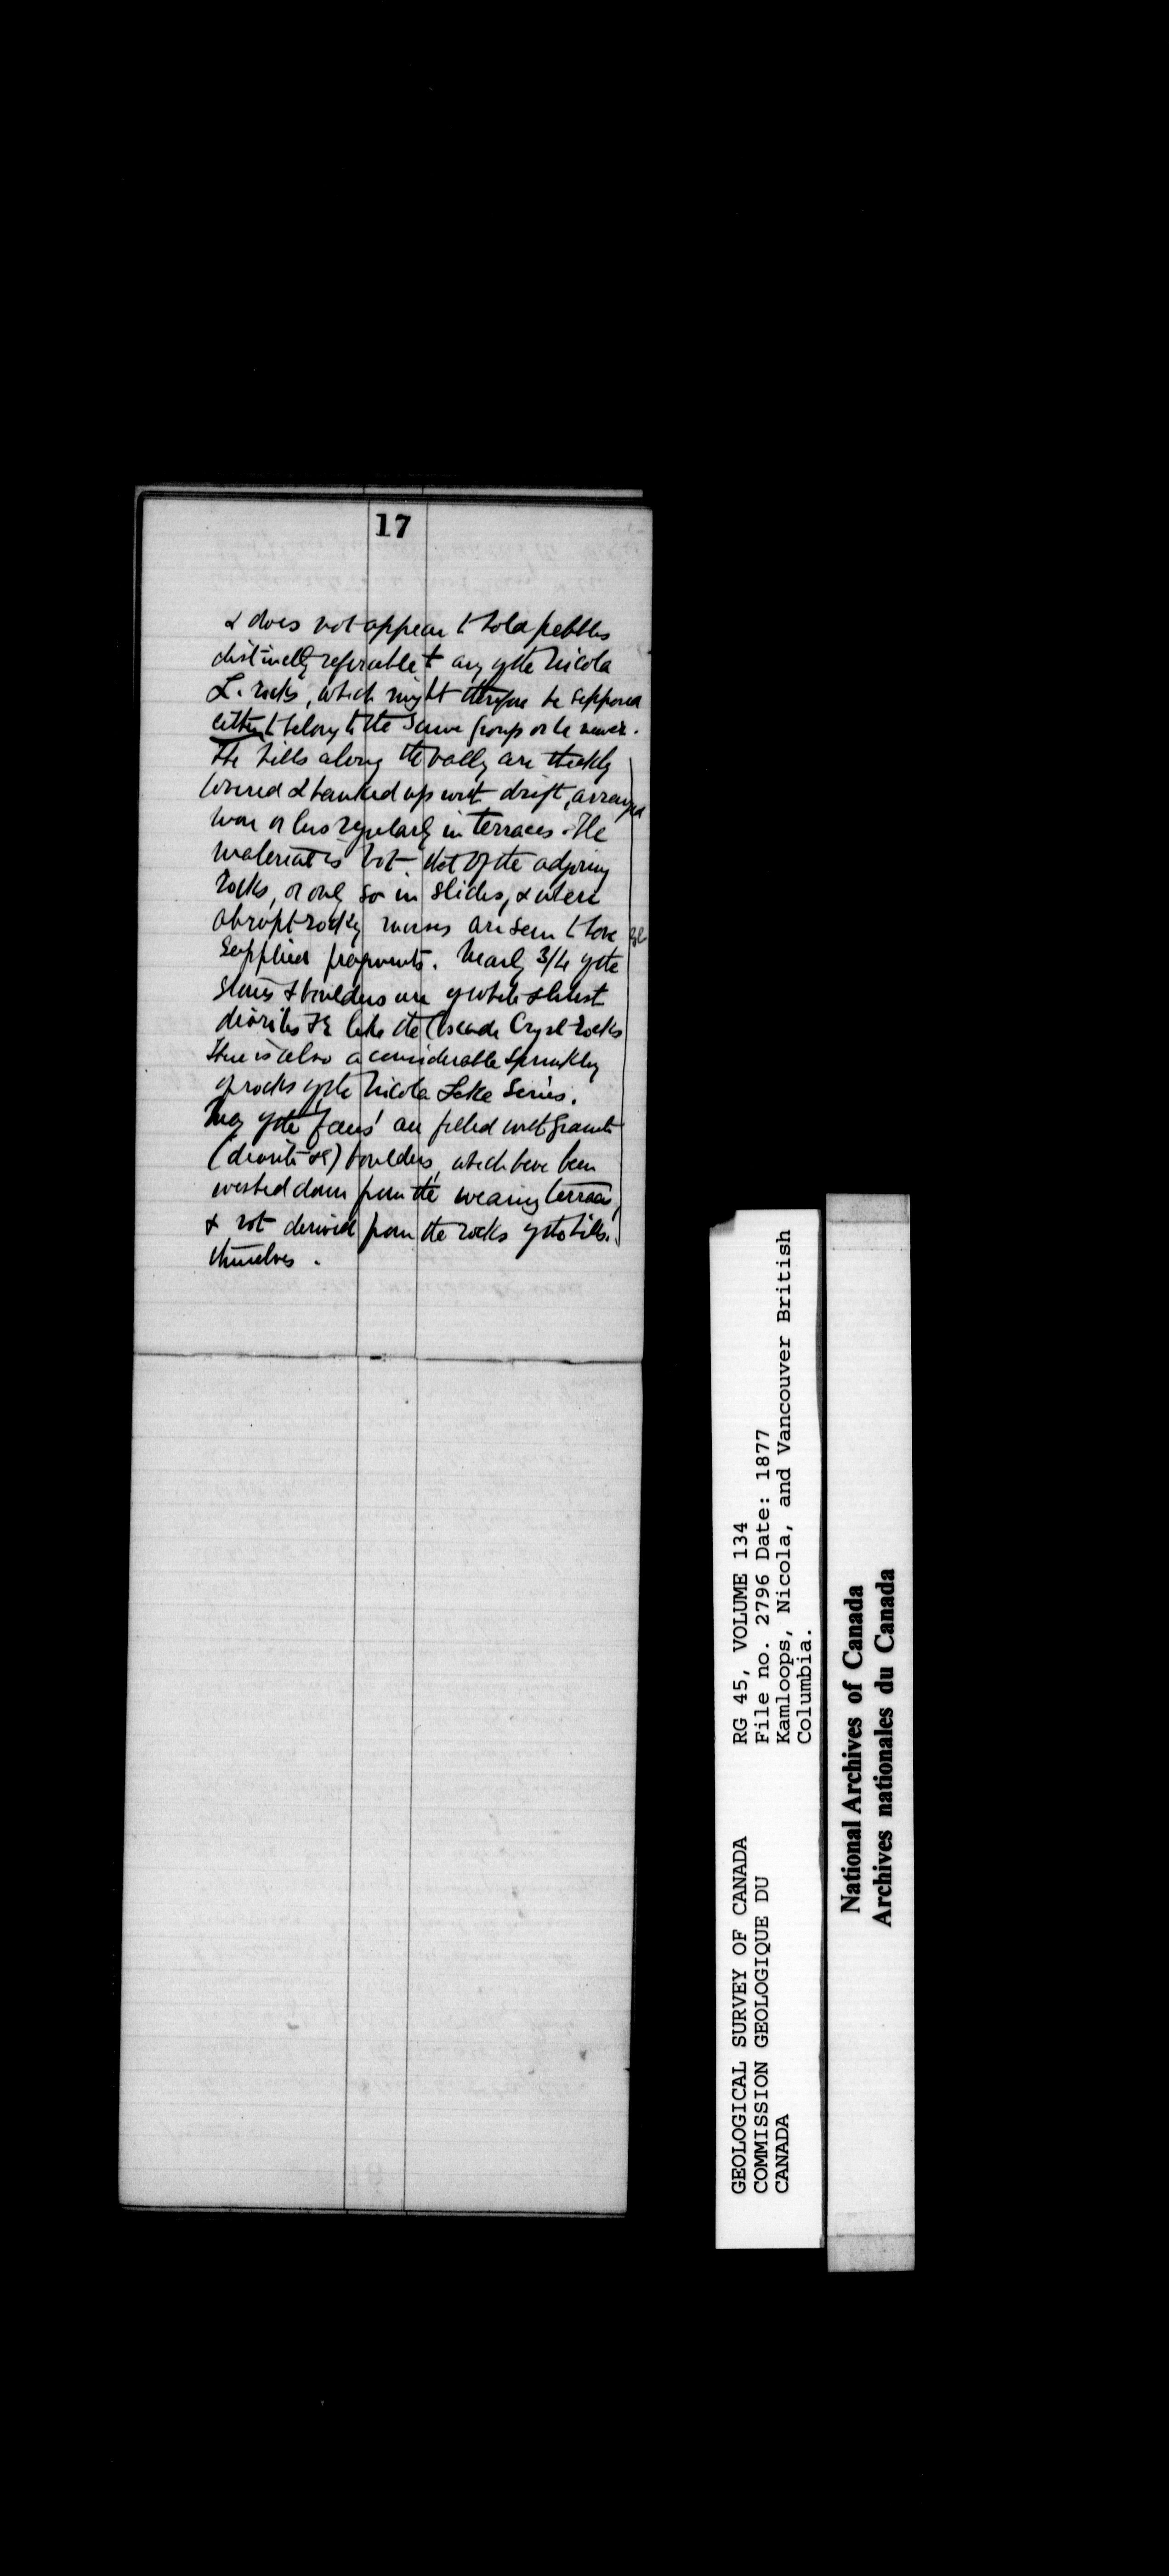 17
& does not appear to hold pebbles
distinctly referable to any of the Nicola
L. rocks, which might therefore be supposed
either to belong to the same group or be newer.
The hills along the vally are thickly
covered & banked up with drift, arranged
more or less regularly in terraces. The
material is not that of the adjoining
rocks, or only so in slides, & where
abrupt rocky masses are seen to have
supplied fragments. Nearly 3/4 of the
stones & boulders are of white & blust
diorites &c like the Cascade Cryst rocks
There is also a considerable sprinkling
of rocks of the Nicola Lake Series.
Many of the 'fans' are filled with granite
(diorite &c) boulders, which have been
washed down from the wearing terraces,
& not derived from the rocks of the hills
themselves.
GEOLOGICAL SURVEY OF CANADA
COMMISSION GEOLOGIQUE DU
CANADA
RG 45, VOLUME 134
File no. 2796 Date: 1877
Kamloops, Nicola, and Vancouver British
Columbia.
National Archives of Canada
Archives nationales du Canada